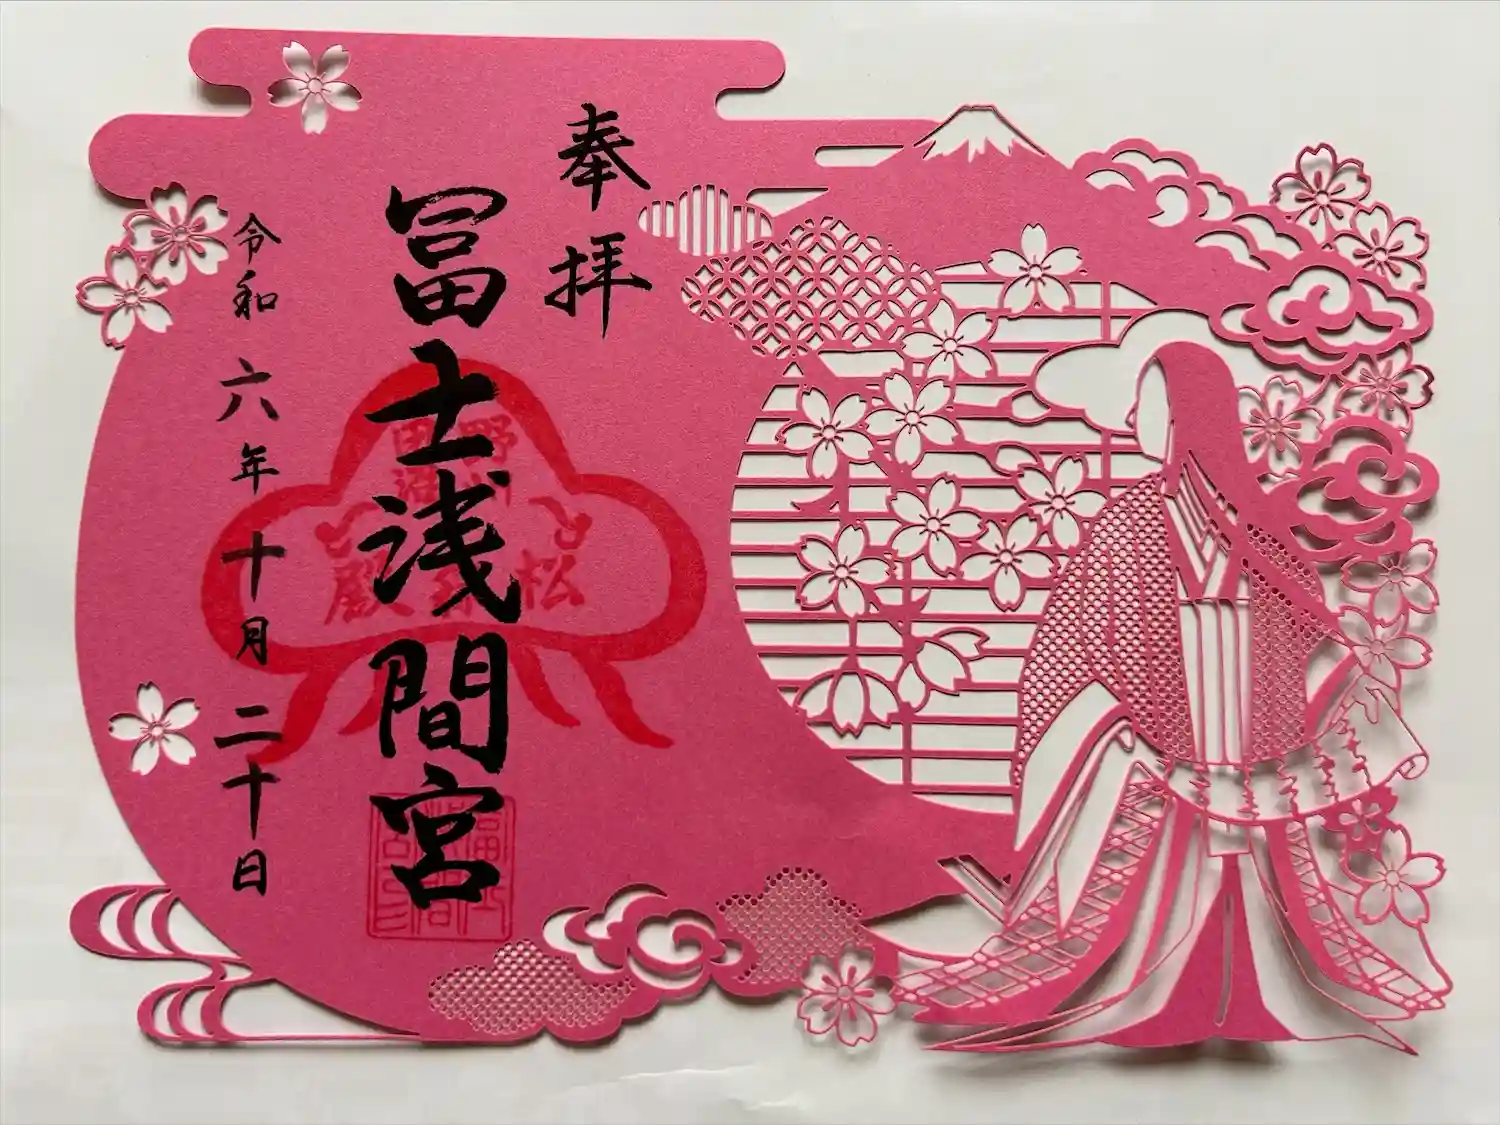 奉拝
冨士浅間宮
令和六年十月二十日